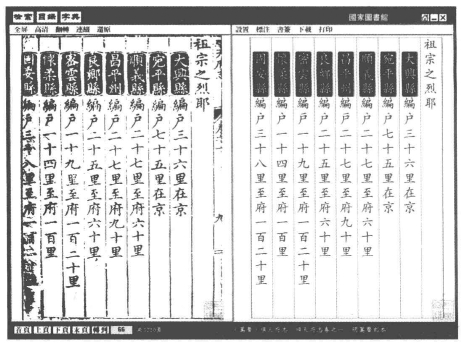 目錄 字典
國家圖書館
全屏 高清 翻轉 連續 還原
設置 標注 書簽 下載 打印
祖宗之烈耶
大興縣編户三十六里在京
宛平縣編户七十五里在京
順義縣編户二十七里至府六十里
昌平州編户二十七里至府九十里
良鄉縣編户二十五里至府六十里
密雲縣編户一十九里至府一百二十里
懷柔縣編户一十四里至府一百里
固安縣編户三十八里至府一百二十里
九
祖宗之烈耶
大興縣編户三十六里在京
宛平縣編户七十五里在京
順義縣編户二十七里至府六十里
昌平州編户二十七里至府九十里
良鄉縣編户二十五里至府六十里
密雲縣編户一十九里至府一百二十里
懷柔縣編户一十四里至府一百里
固安縣編户三十八里至府一百二十里
首頁 上頁 下頁 末頁 轉到 66